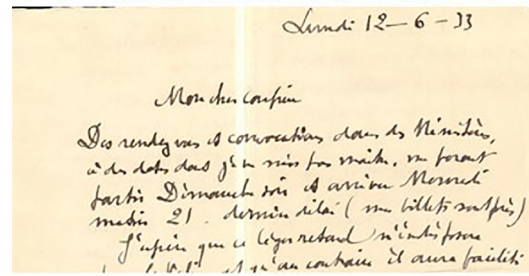 Lundi 12-6-33
Mon cher confrère
Des rendez vous et convocations dans des Ministères,
à des dates dont je ne suis pas maître, me feront
partir Dimanche soir et arriver Mercredi
matin 21. dernier délai (mes billets sont pris)
J'espère que ce léger retard n'indisposera
et qu'au contraire il aura facilité